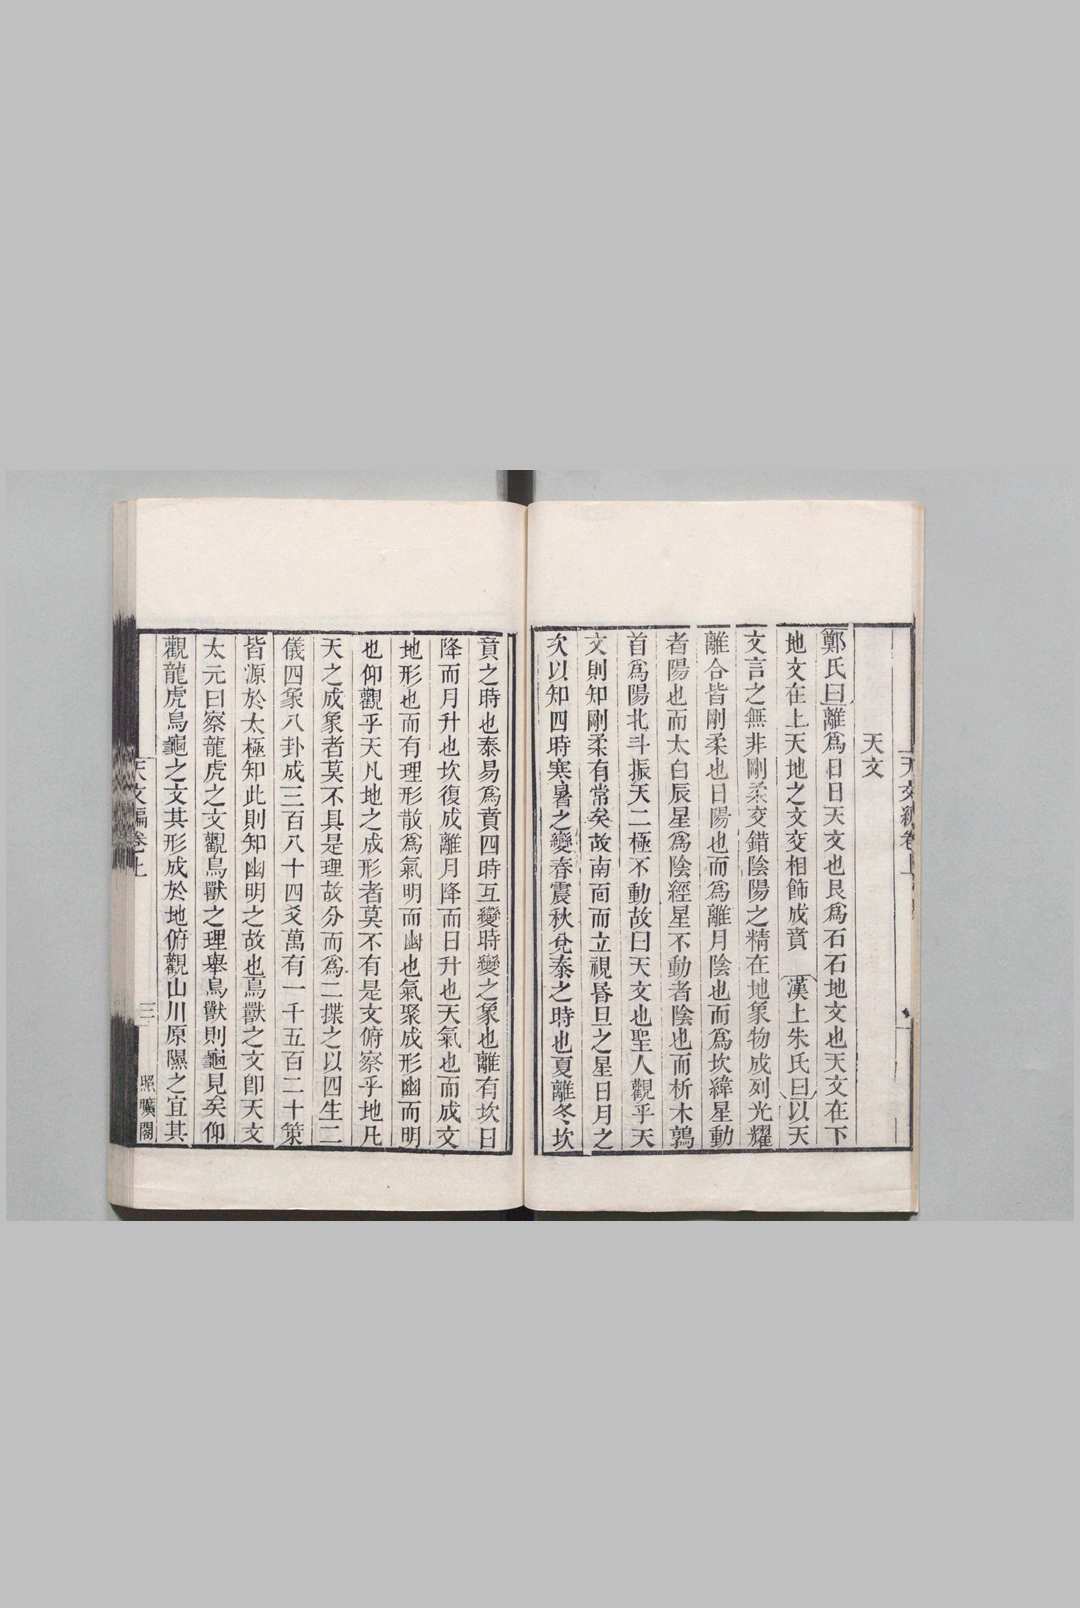 天文
鄭氏曰離爲日日天文也艮爲石石地文也天文在下
地文在上天地之文交相飾成賁　漢上朱氏曰以天
文言之無非剛柔交錯陰陽之精在地象物成列光耀
離合皆剛柔也日陽也而爲離月陰也而爲坎緯星動
者陽也而太白辰星爲陰經星不動者陰也而析木鶉
首爲陽北斗振天二極不動故曰天文也聖人觀乎天
文則知剛柔有常矣故南面而立視昏旦之星日月之
次以知四時寒暑之變春震秋兌泰之時也夏離冬坎
賁之時也泰易爲賁四時互變時變之象也離有坎日
降而月升也坎復成離月降而日升也天氣也而成文
地形也而有理形散爲氣明而幽也氣聚成形幽而明
也仰觀乎天凡地之成形者莫不有是文俯察乎地凡
天之成象者莫不具是理故分而爲二揲之以四生二
儀四象八卦成三百八十四爻萬有一千五百二十策
皆源於太極知此則知幽明之故也鳥獸之文卽天文
太元曰察龍虎之文觀鳥獸之理舉鳥獸則龜見矣仰
觀龍虎鳥龜之文其形成於地俯觀山川原隰之宜其
天文編卷上
三
照曠閣